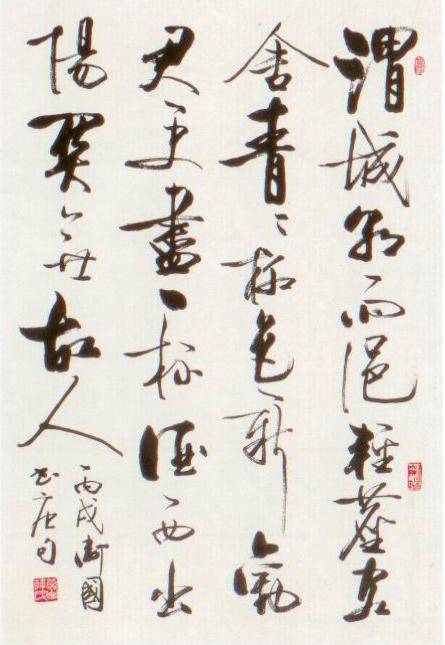 渭城朝雨浥輕塵客
舍青々柳色新勸
君更盡一杯酒西出
陽關無故人
丙戌衛國
書唐句